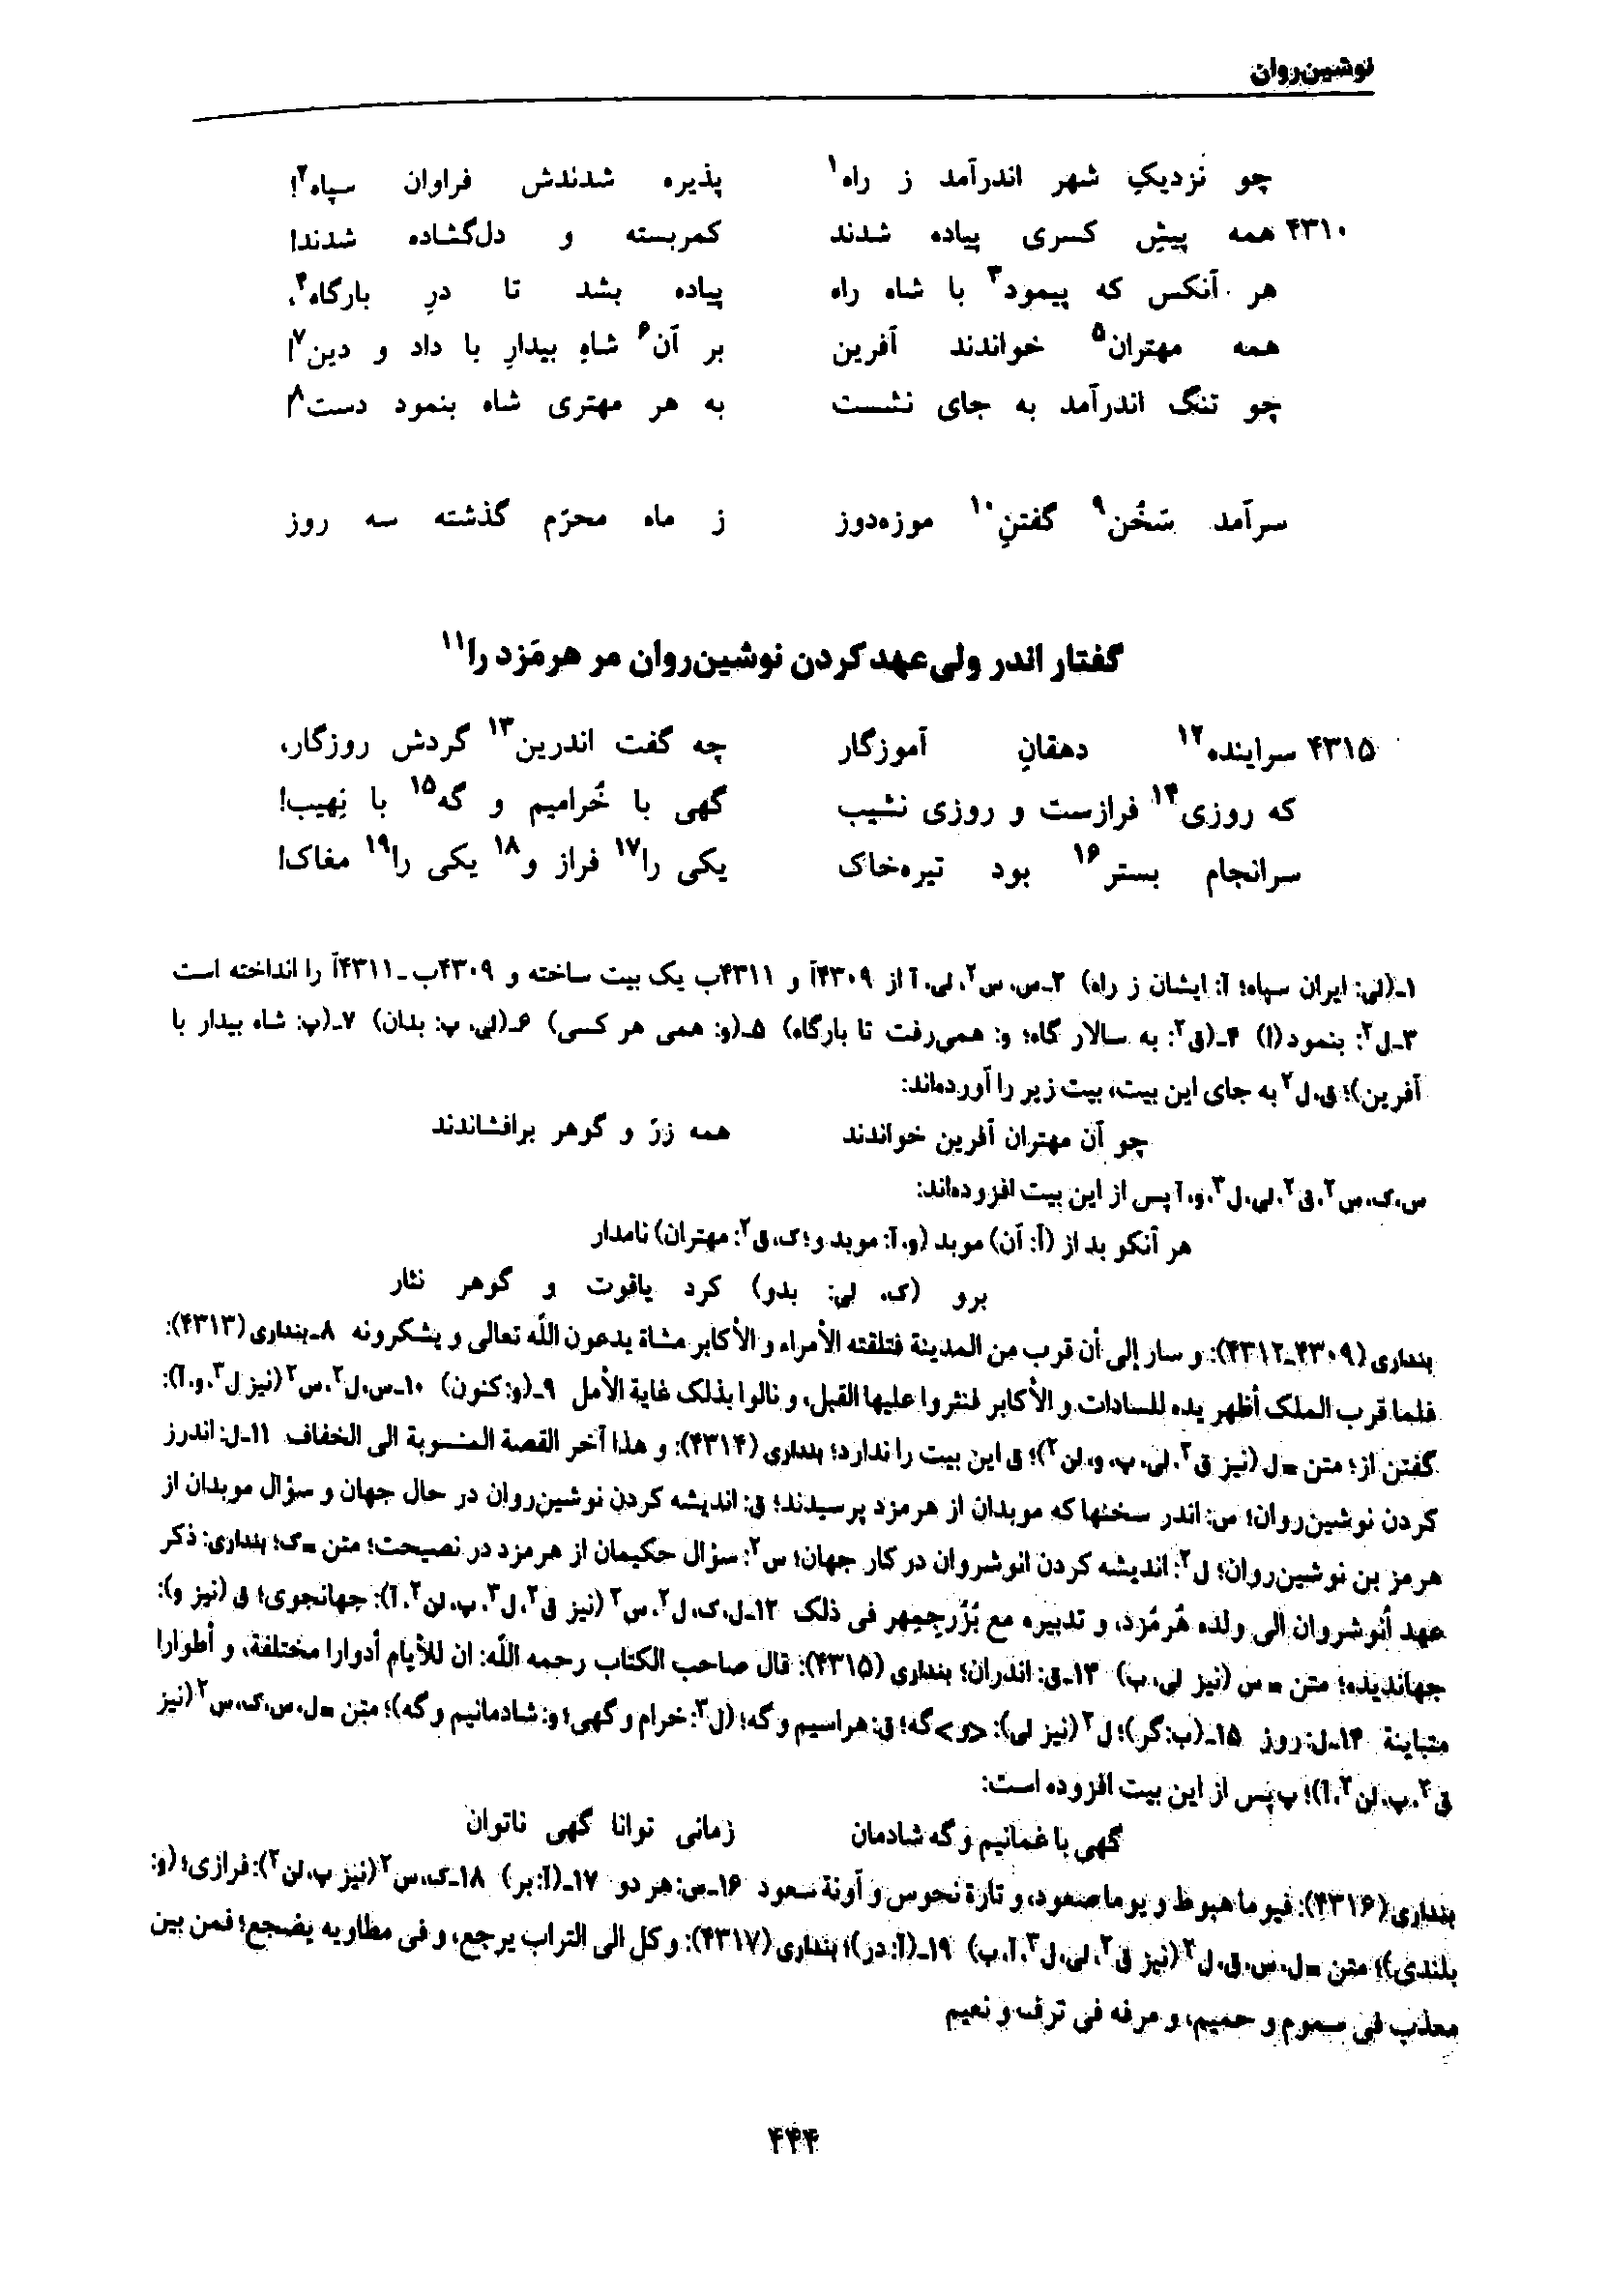 نوشین‌روان
چو نزدیکِ شهر اندرآمد ز راه۱ پذیره شدندش فراوان سپاه۲!
۴۳۱۰ همه پیشِ کسری پیاده شدند کمربسته و دل‌گشاده شدند!
هر آنکس که پیمود۳ با شاه راه پیاده بشد تا درِ بارگاه۴،
همه مهتران۵ خواندند آفرین بر آن۶ شاهِ بیدارِ با داد و دین۷!
چو تنگ اندرآمد به جای نشست به هر مهتری شاه بنمود دست۸!
سرآمد سَخُن۹ گفتنِ۱۰ موزه‌دوز ز ماه محرّم گذشته سه روز
گفتار اندر ولی‌عهد کردن نوشین‌روان مر هرمَزد را۱۱
۴۳۱۵ سراینده۱۲ دهقانِ آموزگار چه گفت اندرین۱۳ گردش روزگار،
که روزی۱۴ فرازست و روزی نشیب گهی با خُرامیم و گه۱۵ با نِهیب!
سرانجام بستر۱۶ بود تیره‌خاک یکی را۱۷ فراز و۱۸ یکی را۱۹ مغاک!
۱ـ(لی: ایران سپاه؛ آ: ایشان ز راه) ۲ـس، س۲، لی، آ از ۴۳۰۹آ و ۴۳۱۱ب یک بیت ساخته و ۴۳۰۹ب ـ ۴۳۱۱آ را انداخته است
۳ـل۲: بنمود(ا) ۴ـ(ق۲: به سالار گاه؛ و: همی‌رفت تا بارگاه) ۵ـ(و: همی هر کسی) ۶ـ(لی، پ: بدان) ۷ـ(پ: شاه بیدار با
آفرین)؛ ق، ل۲ به جای این بیت، بیت زیر را آورده‌اند:
چو آن مهتران آفرین خواندند همه زرّ و گوهر برافشاندند
س، ک، س۲، ق۲، لی، ل۳، و، آ پس از این بیت افزوده‌اند:
هر آنکو بد از (آ: آن) موبد (و، آ: موبد و؛ ک، ق۲: مهتران) نامدار
برو (ک، لی: بدو) کرد یاقوت و گوهر نثار
بنداری (۴۳۰۹ـ۴۳۱۲): و سار إلی أن قرب من المدینة فتلقته الأمراء و الأکابر مشاة یدعون اللّه تعالی و یشکرونه ۸ـبنداری (۴۳۱۳):
فلما قرب الملک أظهر یده للسادات و الأکابر فنثروا علیها القبل، و نالوا بذلک غایة الأمل ۹ـ(و: کنون) ۱۰ـس، ل۲، س۲ (نیز ل۳، و، آ):
گفتن از؛ متن = ل (نیز ق۲، لی، پ، و، لن۲)؛ ق این بیت را ندارد؛ بنداری (۴۳۱۴): و هذا آخر القصة المنسوبة الی الخفاف ۱۱ـل: اندرز
کردن نوشین‌روان؛ س: اندر سخنها که موبدان از هرمزد پرسیدند؛ ق: اندیشه کردن نوشین‌روان در حال جهان و سؤال موبدان از
هرمز بن نوشین‌روان؛ ل۲: اندیشه کردن انوشروان در کار جهان؛ س۲: سؤال حکیمان از هرمزد در نصیحت؛ متن = ک؛ بنداری: ذکر
عهد أنوشروان الی ولده هُرمُزد، و تدبیره مع بُزُرجِمِهر فی ذلک ۱۲ـل، ک، ل۲، س۲ (نیز ق۲، ل۳، پ، لن۲، آ): جهانجوی؛ ق (نیز و):
جهاندیده؛ متن = س (نیز لی، ب) ۱۳ـق: اندران؛ بنداری (۴۳۱۵): قال صاحب الکتاب رحمه اللّه: ان للأیام أدوارا مختلفة، و أطوارا
متباینة ۱۴ـل: روز ۱۵ـ(ب: گر)؛ ل۲ (نیز لی): <و> گه؛ ق: هراسیم و گه؛ (ل۳: خرام و گهی؛ و: شادمانیم و گه)؛ متن = ل، س، ک، س۲ (نیز
ق۲، پ، لن۲، آ)؛ پ پس از این بیت افزوده است:
گهی با غمانیم و گه شادمان زمانی توانا گهی ناتوان
بنداری (۴۳۱۶): فیوما هبوط و یوما صعود، و تارة نحوس و آونة سعود ۱۶ـس: هر دو ۱۷ـ(آ: بر) ۱۸ـک، س۲ (نیز پ، لن۲): فرازی؛ (و:
بلندی)؛ متن = ل، س، ق، ل۲ (نیز ق۲، لی، ل۳، آ، ب) ۱۹ـ(آ: در)؛ بنداری (۴۳۱۷): و کل الی التراب یرجع، و فی مطاویه یضجع؛ فمن بین
معذب فی سموم و حمیم، و مرفه فی ترف و نعیم
۴۴۴